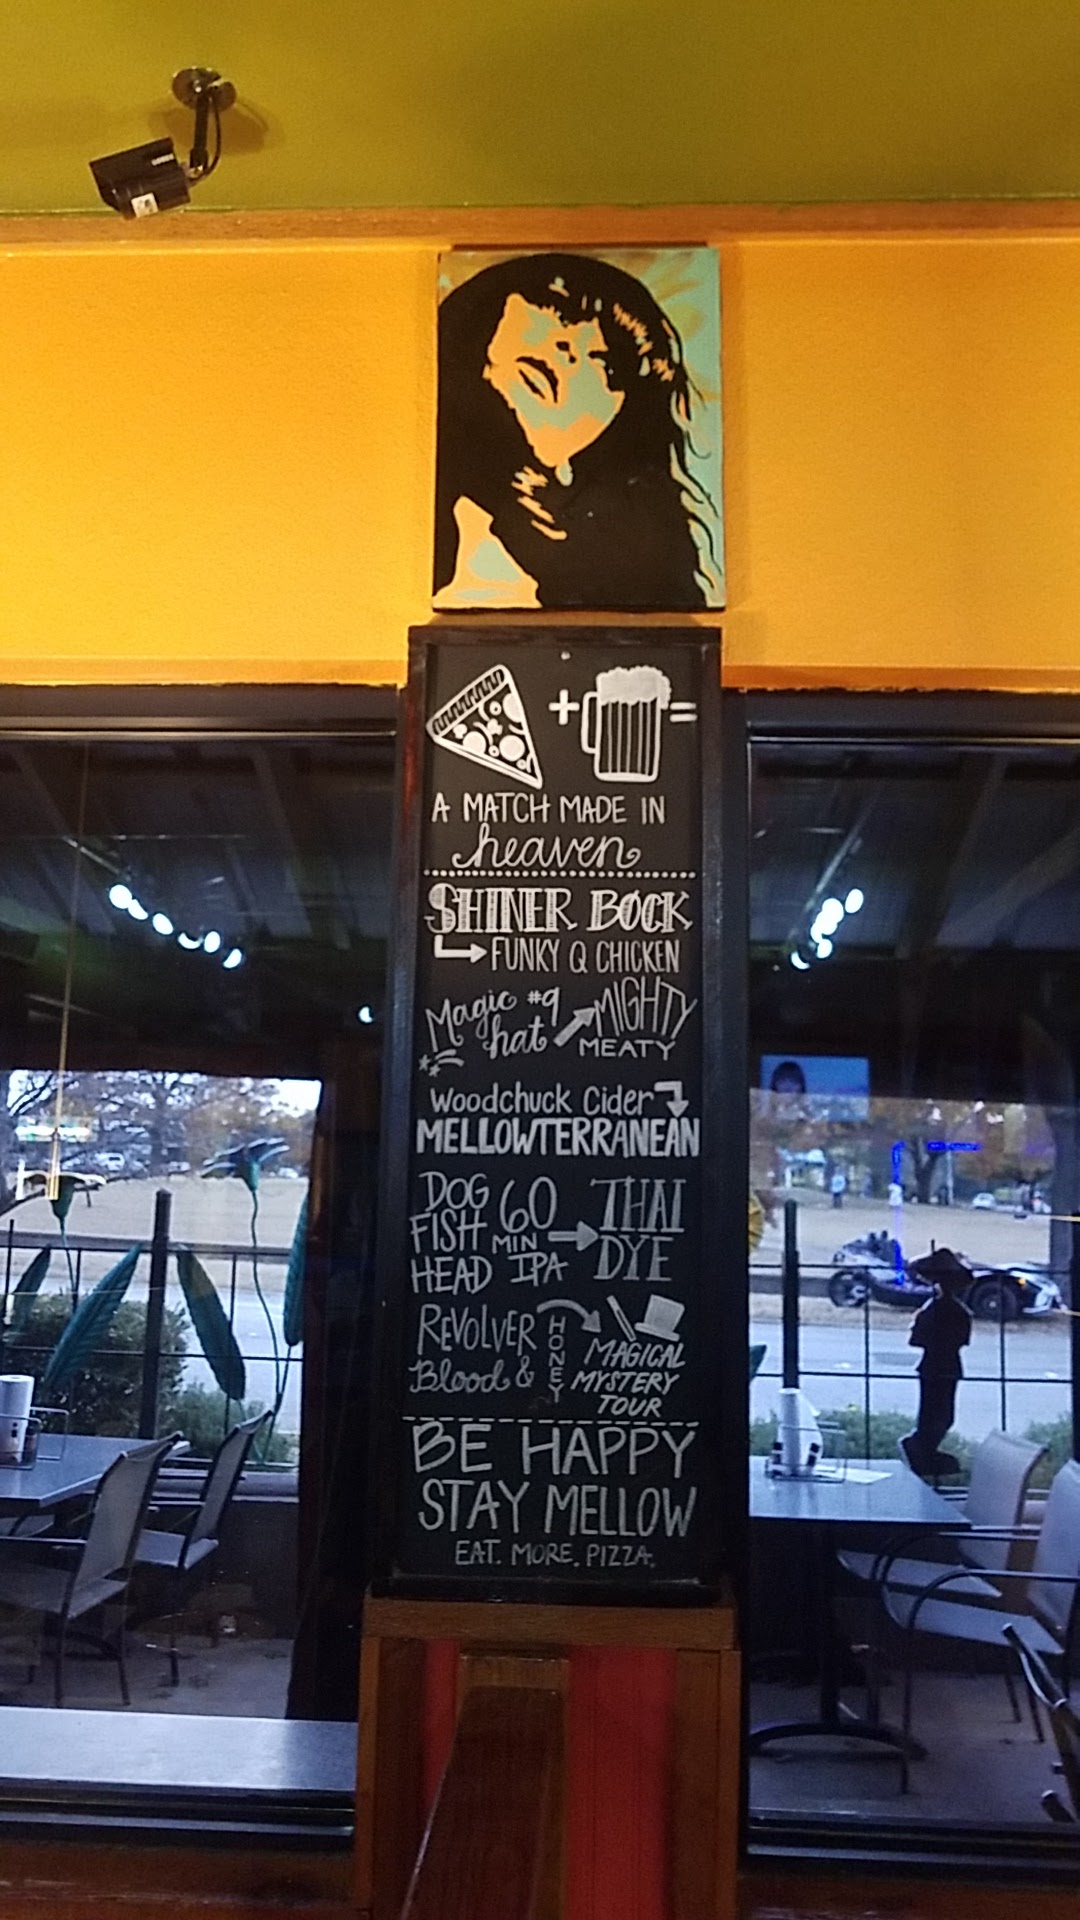 + =
A MATCH MADE IN
heaven
SHINER BOCK
FUNKY Q CHICKEN
Magic #9
hat
MIGHTY
MEATY
Woodchuck Cider
MELLOWTERRANEAN
DOG
FISH
HEAD
60
MIN
IPA
THAI
DYE
REVOLVER
Blood &
HONEY
MAGICAL
MYSTERY
TOUR
BE HAPPY
STAY MELLOW
EAT. MORE. PIZZA.